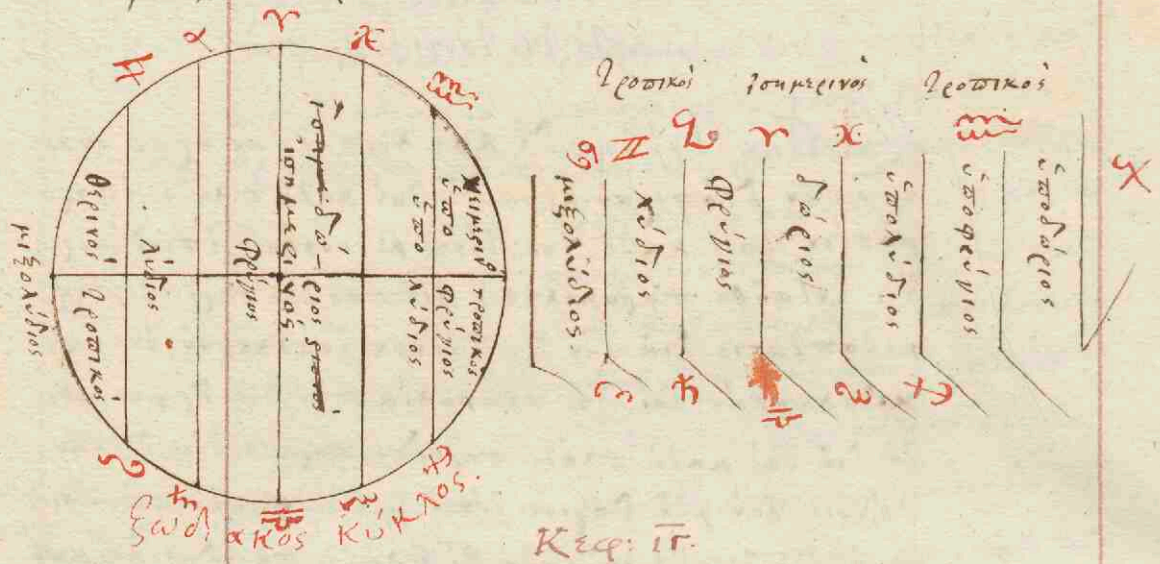 ♈
♓
♒
θερινὸς τροπικός
μιξολύδιος
λύδιος
φρύγιος
ἰσημερινός
δώριος
ὑπο λύδιος
ὑπο φρύγιος
τροπικός
♎
ζωδιακὸς κύκλος.
τροπικός ἰσημερινός τροπικός
♋ ♊ ♉ ♈ ♓ ♒
μιξολύδιος
λύδιος
φρύγιος
δώριος
ὑπολύδιος
ὑποφρύγιος
ὑποδώριος
♎
Κεφ: ιγ.